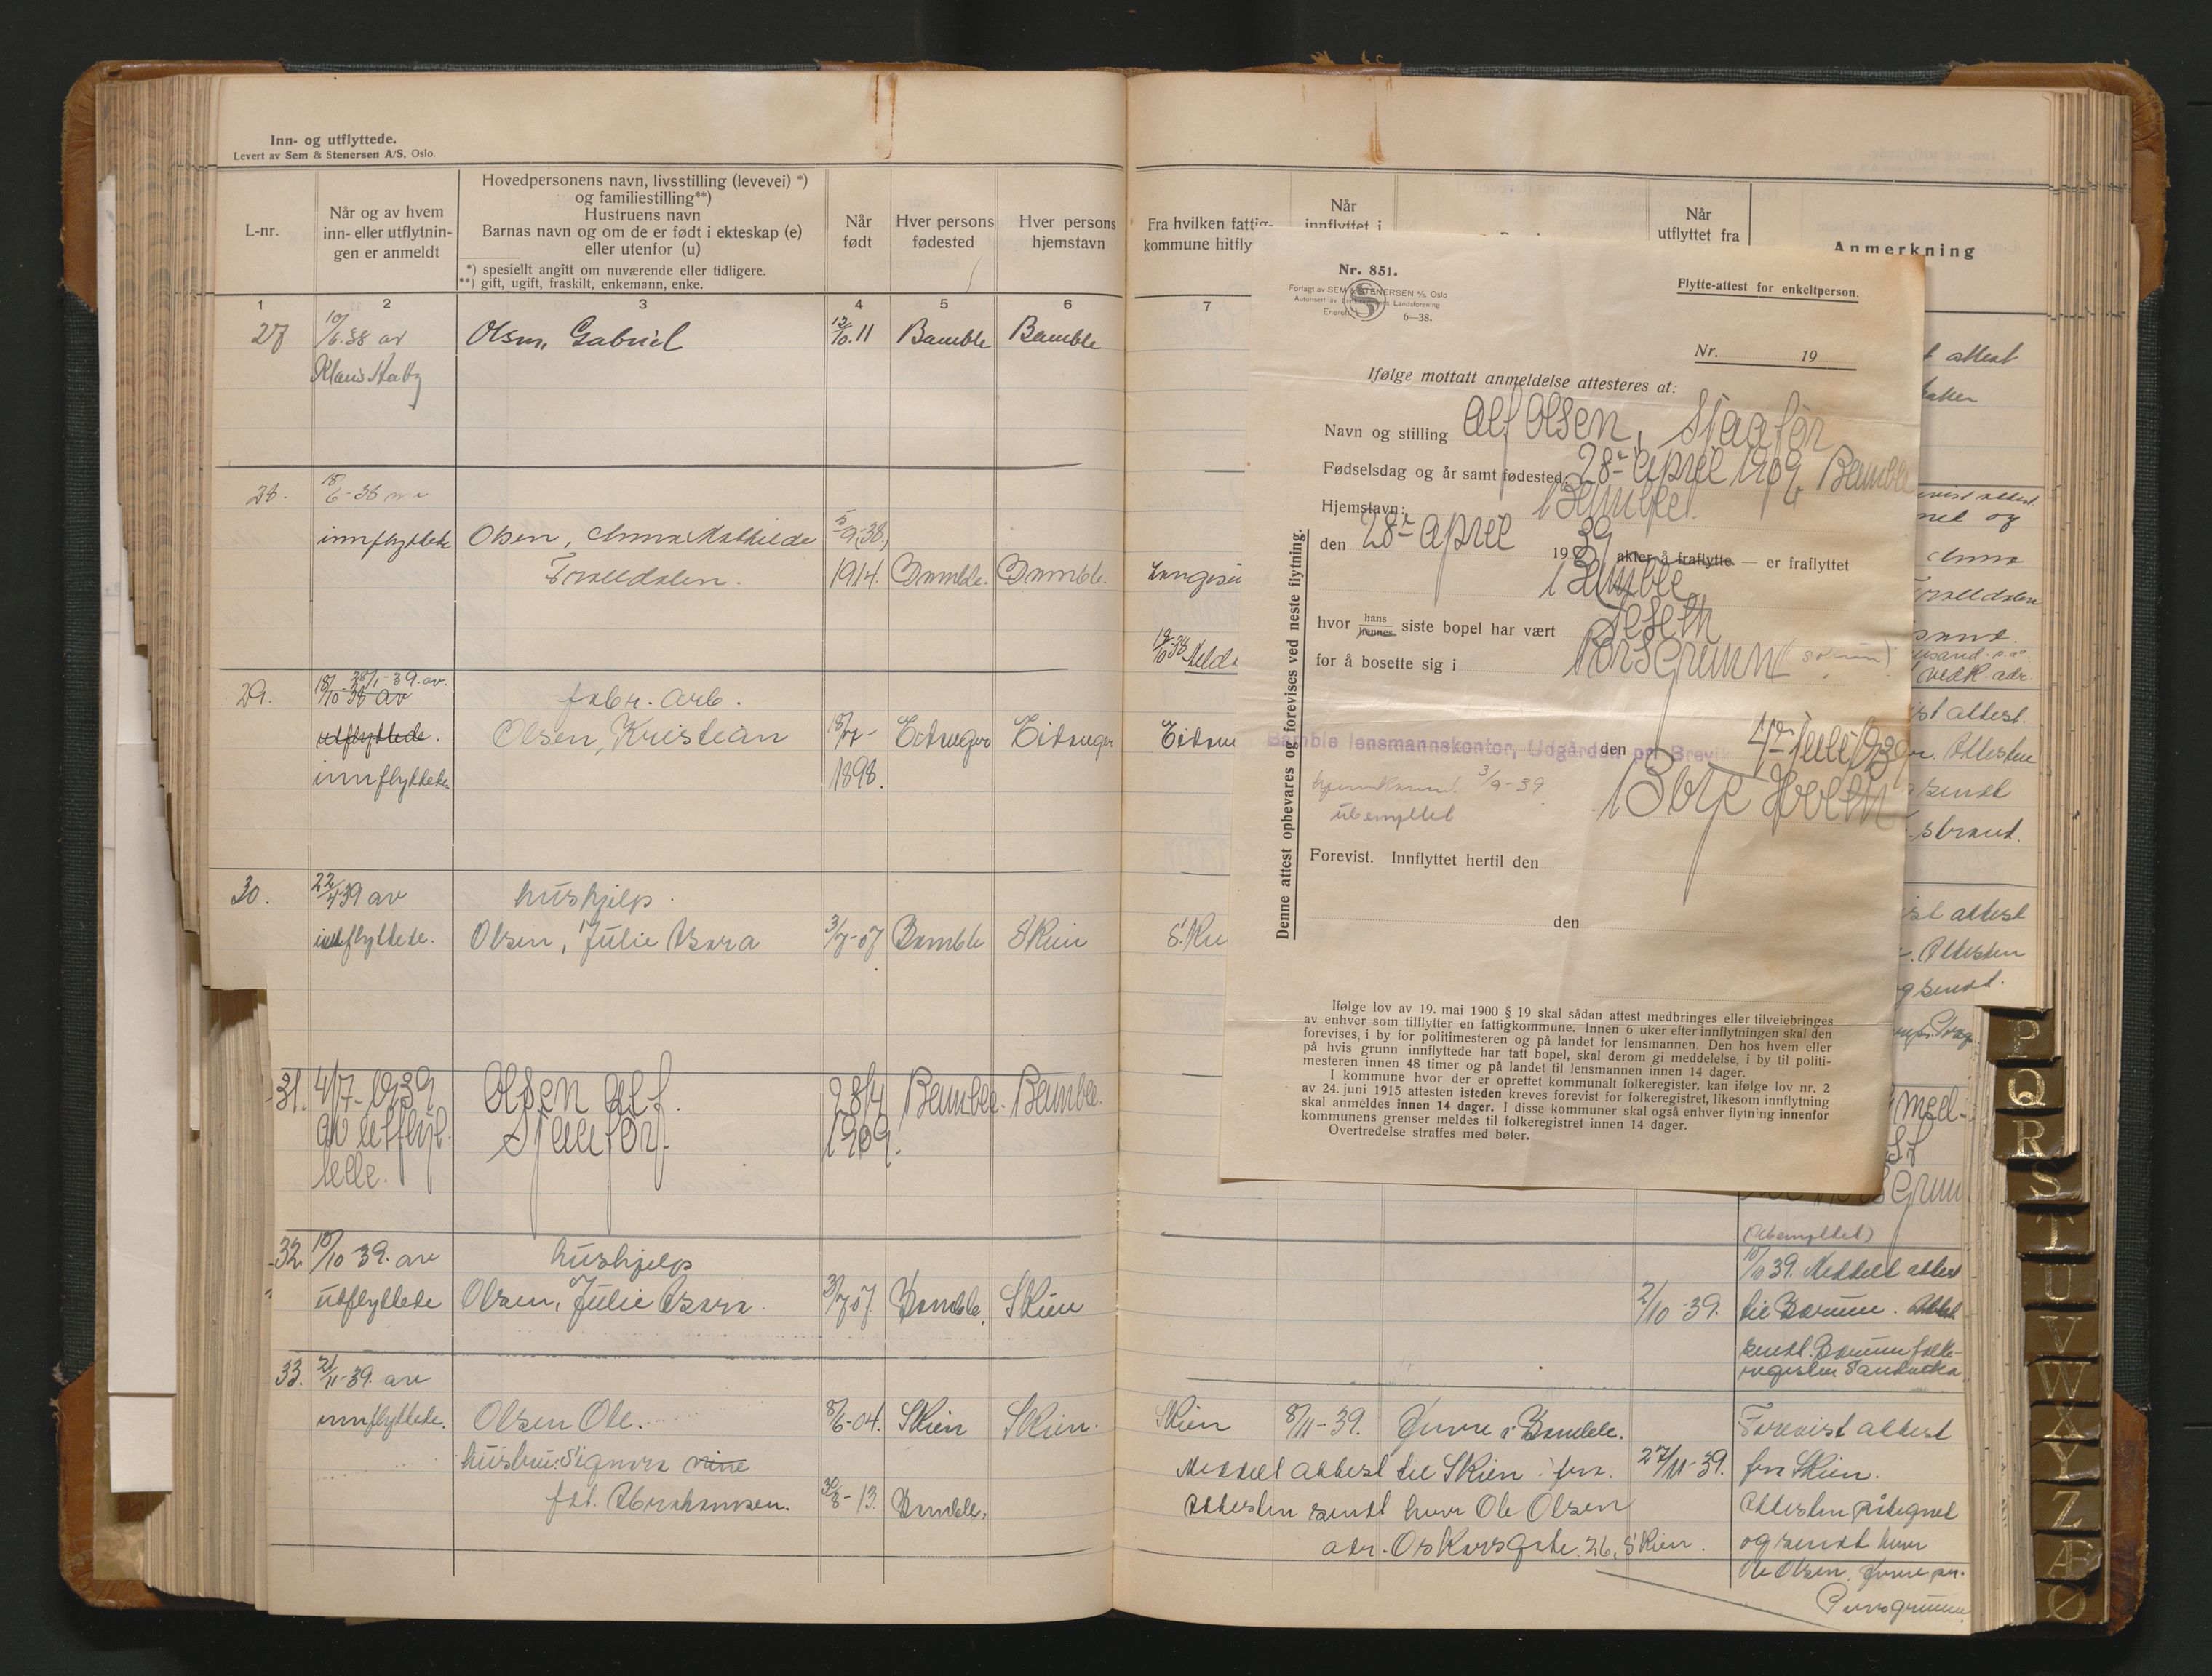 Inn- og utflyttede.
Levert av Sem & Stenersen A/S, Oslo.
L-nr.
Når og av hvem
inn- eller utflytnin-
gen er anmeldt
Hovedpersonens navn, livsstilling (levevei) *)
og familiestilling**)
Hustruens navn
Barnas navn og om de er født i ekteskap (e)
eller utenfor (u)
*) spesiellt angitt om nuværende eller tidligere.
**) gift, ugift, fraskilt, enkemann, enke.
Når
født
Hver persons
fødested
Hver persons
hjemstavn
1 2 3 4 5 6
27 10/6.38 av Olsen, Gabriel 12/10.11 Bamble Bamble
28. 18/6-38
innflyttede Olsen, Anna Mathilde
Tralldalen. 1914. Bamble. Bamble.
29. 18/10-38 av 25/1-39. av.
fabr. arb.
utflyttede. Olsen, Kristian 18/7- Eidanger Eidanger
innflyttede 1898.
30. 22/4-39 av hushjelp.
innflyttede. Olsen, Julie Asora 3/7-07 Bamble Skien
31. 4/7-1939 Olsen Alf. 28/4 Bamble. Bamble.
av utflyt- Sjaafør. 1909.
tede.
32. 10/10 39. av hushjelp
utflyttede Olsen, Julie Asora. 3/7 07. Bamble. Skien
33. 21/11-39. av
innflyttede. Olsen Ole. 8/6-04. Skien Skien.
hustru: Signora
født. Abrahamsen. 30/8-13. Bamble.
Fra hvilken fattig-
kommune hitfly
Når
innflyttet i
Når
utflyttet fra
Anmerkning
7
t attest
Eidan
Tralldalen
vedk. adr.
st attest.
Attesten
sendt
st attest
Attesten
sendt.
Nr. 851.
Forlagt av SEM & STENERSEN A/S, Oslo
Autorisert av Lensmennenes Landsforening
Enerett
6—38.
Flytte-attest for enkeltperson.
Nr. 19
Ifølge mottatt anmeldelse attesteres at:
Navn og stilling Alf Olsen, Sjaafør
Fødselsdag og år samt fødested: 28. April 1909, Bamble
Hjemstavn: Bamble.
den 28. April 1939 akter å fraflytte — er fraflyttet
Bamble
hvor hans hennes siste bopel har vært
for å bosette sig i Porsgrunn
Bamble lensmannskontor, Udgården pr. Brevik den 4. juli 1939
3/9-39
ubenyttet
Forevist. Innflyttet hertil den
den
Denne attest opbevares og forevises ved neste flytning.
Ifølge lov av 19. mai 1900 § 19 skal sådan attest medbringes eller tilveiebringes
av enhver som tilflytter en fattigkommune. Innen 6 uker efter innflytningen skal den
forevises, i by for politimesteren og på landet for lensmannen. Den hos hvem eller
på hvis grunn innflyttede har tatt bopel, skal derom gi meddelelse, i by til politi-
mesteren innen 48 timer og på landet til lensmannen innen 14 dager.
I kommune hvor der er oprettet kommunalt folkeregister, kan ifølge lov nr. 2
av 24. juni 1915 attesten isteden kreves forevist for folkeregistret, likesom innflytning
skal anmeldes innen 14 dager. I disse kommuner skal også enhver flytning innenfor
kommunens grenser meldes til folkeregistret innen 14 dager.
Overtredelse straffes med bøter.
(Ubenyttet)
10/10 39. Meddelt attest
2/10-39. til Bærum. Attest
sendt. Bærum folke-
register Sandvika.
Skien 8/11-39. Furre i Bamble. Forevist attest
Meddelt attest til Skien fra. 27/11-39. fra Skien.
Attesten sendt herr Ole Olsen Attesten påtegnet
adr. Oskarsgate. 26, Skien. og sendt herr
Ole Olsen, Furre pr.
Porsgrunn.
P
Q
R
S
T
U
V
W
X
Y
Z
Æ
Ø